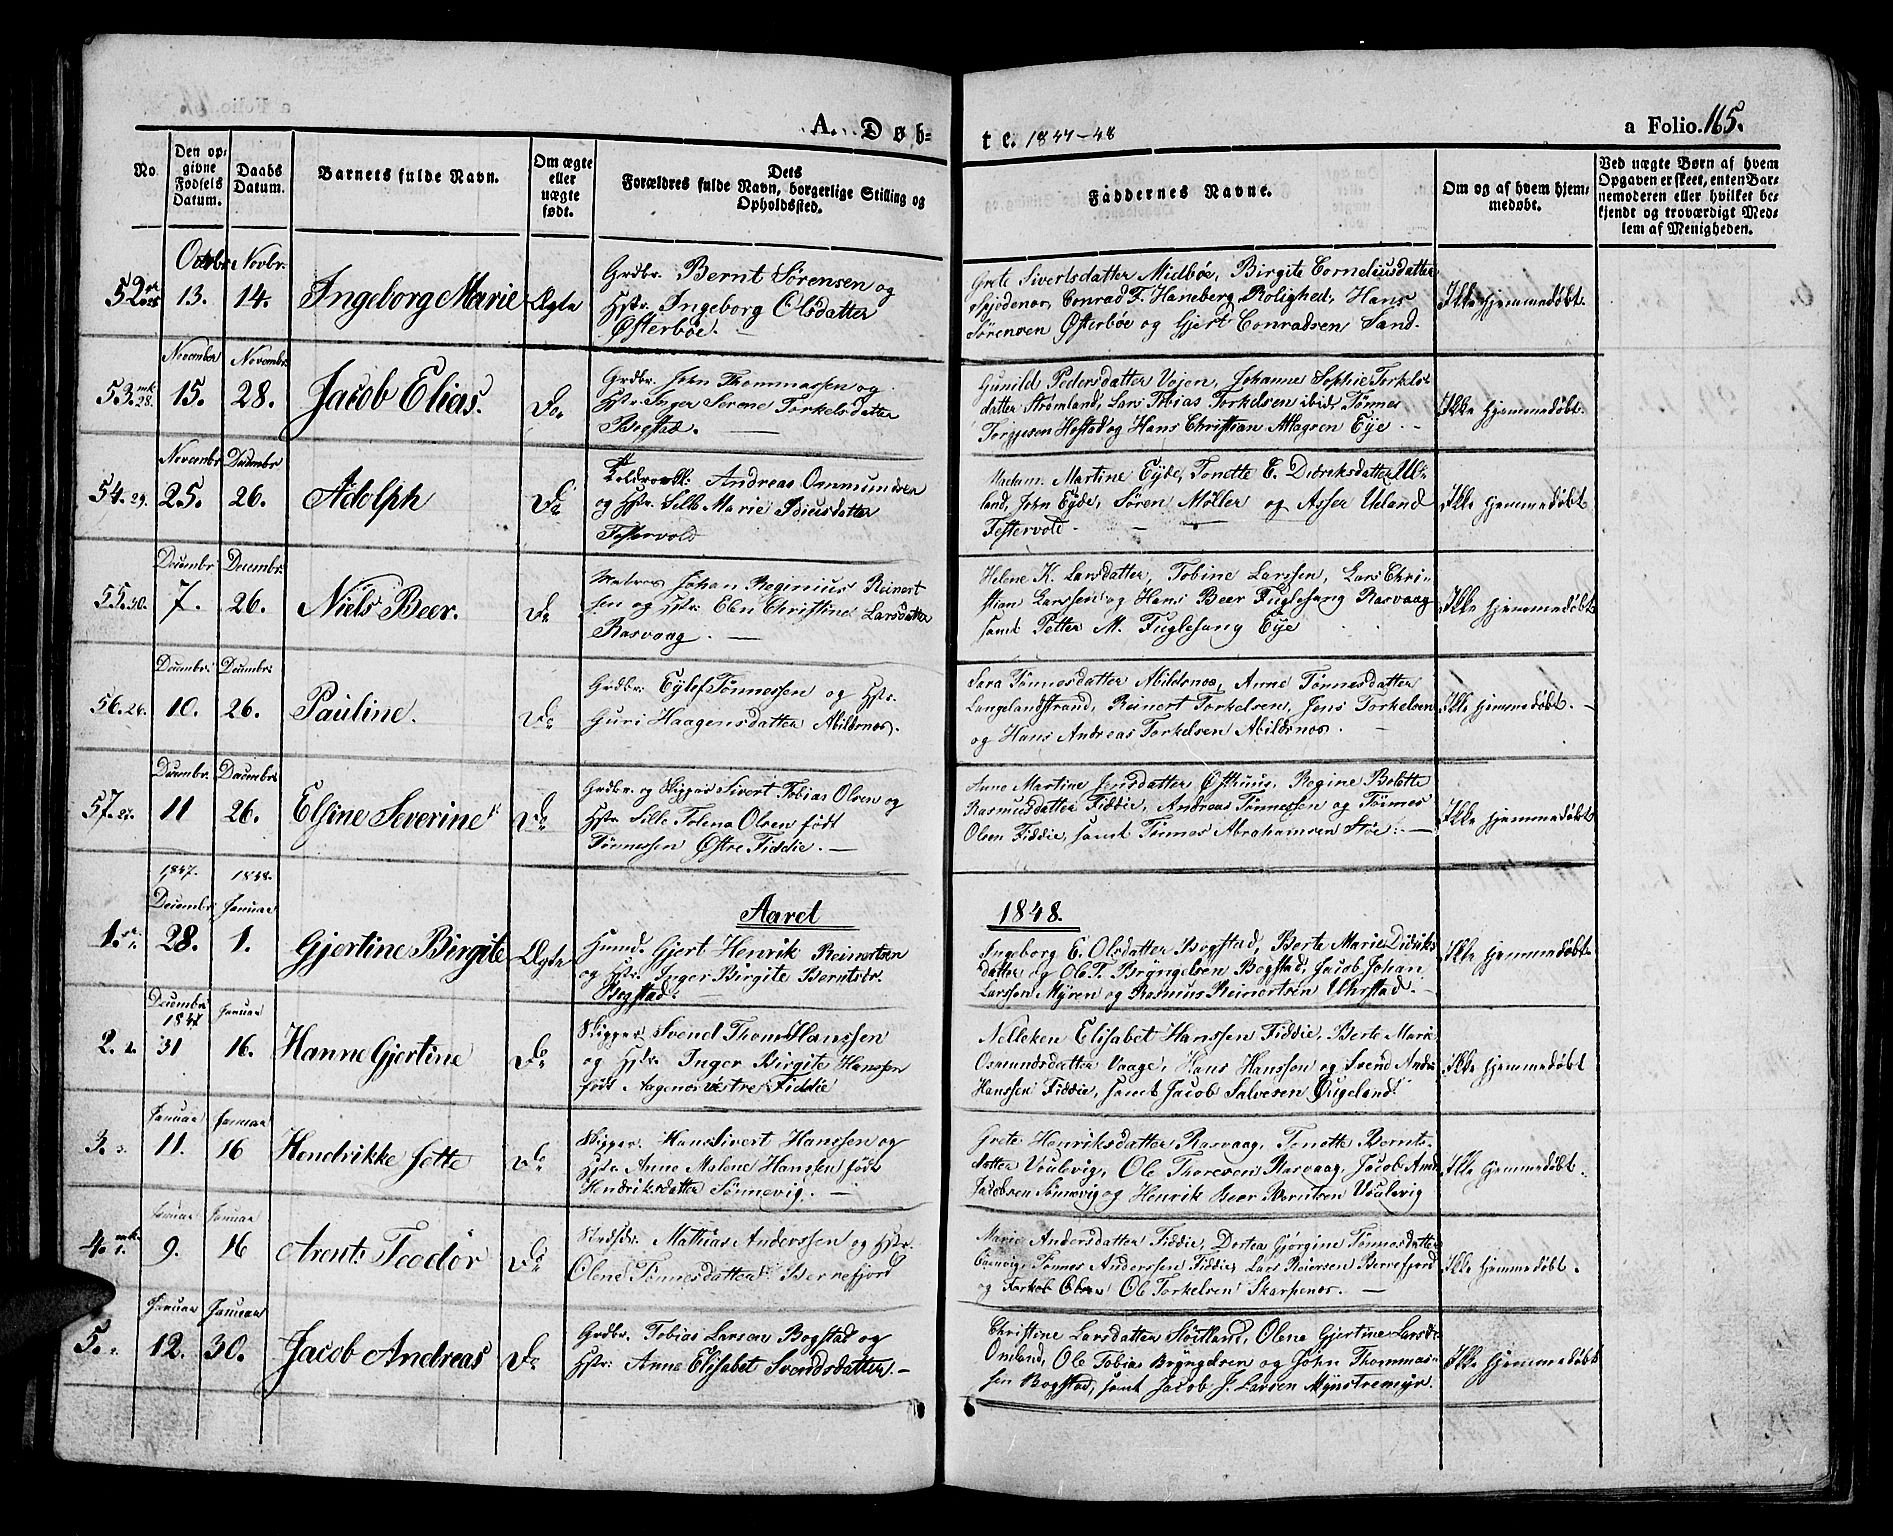 A. Døb-
te. 1847-48
a Folio. 165.
No.
Den op-
givne
Fødsels
Datum.
Daabs
Datum.
Barnets fulde Navn.
Om ægte
eller
uægte
født.
Dets
Forældres fulde Navn, borgerlige Stilling og
Opholdssted.
Faddernes Navne.
Om og af hvem hjem-
medøbt.
Ved uægte Børn af hvem
Opgaven er skeet, enten Bar-
nemoderen eller hvilket be-
kjendt og troværdigt Med-
lem af Menigheden.
Octobr. Novbr.
52. 13. 14. Ingeborg Marie Ægte
Grdbr. Bernt Sørensen og
Hstr. Ingeborg Olsdatter
Østerbøe. —
Grete Sivertsdatter Midbøe, Birgite Corneliusdatter
Spjodenæs, Conrad F. Haneberg Rolighed, Hans
Sørensen Østerbøe og Gjert Conradsen Sand.
Ikke hjemmedøbt.
November Novembr.
53. mk. 28. 15. 28. Jacob Elias. Do.
Grdbr. John Thommassen og
Hstr. Inger Serene Torkelsdatter
Bogstad. —
Gunild Pedersdatter Vojen, Johanne Sophie Torkels-
datter Strømland, Lars Tobias Torkelsen ibid: Tønnes
Torgjesen Hostad og Hans Christian Aagsen Eye. —
Ikke hjemmedøbt.
Novembr. Decembr
54. 29. 25. 26. Adolph Do
Andreas Ommundsen
og Hstr. Sille Marie Idiusdatter
Festervold
Madam. Martine Eyde, Tonette E. Didriksdatter Ue-
land, John Eyde, Søren Møller og Asser Ueland
Festervold. —
Ikke hjemmedøbt
Decembr Decembr.
55. 30. 7. 26. Niels Beer. Do
Matros Johan Reginius Reinert
sen og Hstr: Elen Christine Larsdatter
Rasvaag. —
Helene K. Larsdatter, Tobine Larssen, Lars Chri-
stian Larssen og Hans Beer Fuglesang Rasvaag
samt Petter M. Fuglesang Eye
Ikke hjemmedøbt
Decembr. Decembr.
56. 26. 10. 26. Pauline. Do
Grdbr: Eylef Tønnessen og Hstr.
Guri Haagensdatter Abildsnæs.
Sara Tønnesdatter Abildsnæs, Anne Tønnesdatter
Langelandstrand, Reinert Torkelsen, Jens Torkelsen
og Hans Andreas Torkelsen Abildsnæs. —
Ikke hjemmedøbt. —
Decembr. Decembr.
57. 27. 11 26. Elsine Severine Do
Grdbr. og Skipper Sivert Tobias Olsen og
Hstr. Sille Tolena Olsen født
Tønnessen Østre Fiddie. —
Anne Martine Jensdatter Østhuus, Regine Bolette
Rasmusdatter Fiddie, Andreas Tønnessen og Tønnes
Olsen Fiddie, samt Tønnes Abrahamsen Støe: —
Ikke hjemmedøbt
1847. 1848.
Aaret
1848.
Decembr Januar
1. 28. 1. Gjertine Birgite Ægte
Huusd. Gjert Henrik Reinertsen
og Hstr. Inger Birgite Berntsbr.
Bogstad. —
Ingeborg E. Olsdatter Bogstad, Berte Marie Didriks-
datter og Ole T. Brøngelsen Bogstad, Jacob Johan
Larssen Myren og Rasmus Reinertsen Uhrstad. —
Ikke hjemmedøbt.
Decembr
1847 Januar
2. 2. 31 16. Hanne Gjertine Do
Skipper Svend Thom Hanssen
og Hstr. Inger Birgite Hanssen
født Aagenæs vestre Fiddie
Nelleken Elisabet Hanssen Fiddie, Berte Marie
Osmundsdatter Vaage, Hans Hanssen og Svend Andr.
Hanssen Fiddie, samt Jacob Salvesen Øigeland.
Ikke hjemmedøbt
Januar Januar
3. 3. 11. 16 Hendrikke Jette Do
Skipper. Hans Sivert Hanssen og
Hstr. Anne Malene Hanssen født
Hendriksdatter Sønnevig. —
Grete Henriksdatter Rasvaag, Tonette Bernts-
datter Voulevig, Ole Thoresen Rasvaag, Jacob And.
Jacobsen Sønnevig og Henrik Beer Berntsen Voulevig
Ikke hjemmedøbt.
Januar Januar
4. mk. 1. 9. 16 Arent Teodor Do
Mathias Anderssen og Hstr.
Olene Tønnesdatter Bernefjord
Marie Andersdatter Fiddie, Dortea Gjørgine Tønnesdatter
Tønnes Anderssen Fiddie, Lars Reiersen Bernefjord
og Ole Torkelsen Skarpenæs. —
Ikke hjemmedøbt.
Januar Januar
5. 12. 30. Jacob Andreas Do
Grdbr. Tobias Larsen Bogstad og
Hstr. Anne Elisabet Svendsdatter. —
Christine Larsdatter Støitland, Olene Gjertine Larsd.
Omland, Ole Tobias Brøngelsen og John Thommas-
sen Bogstad, samt Jacob J. Larsen Mønstremyr.
Ikke hjemmedøbt